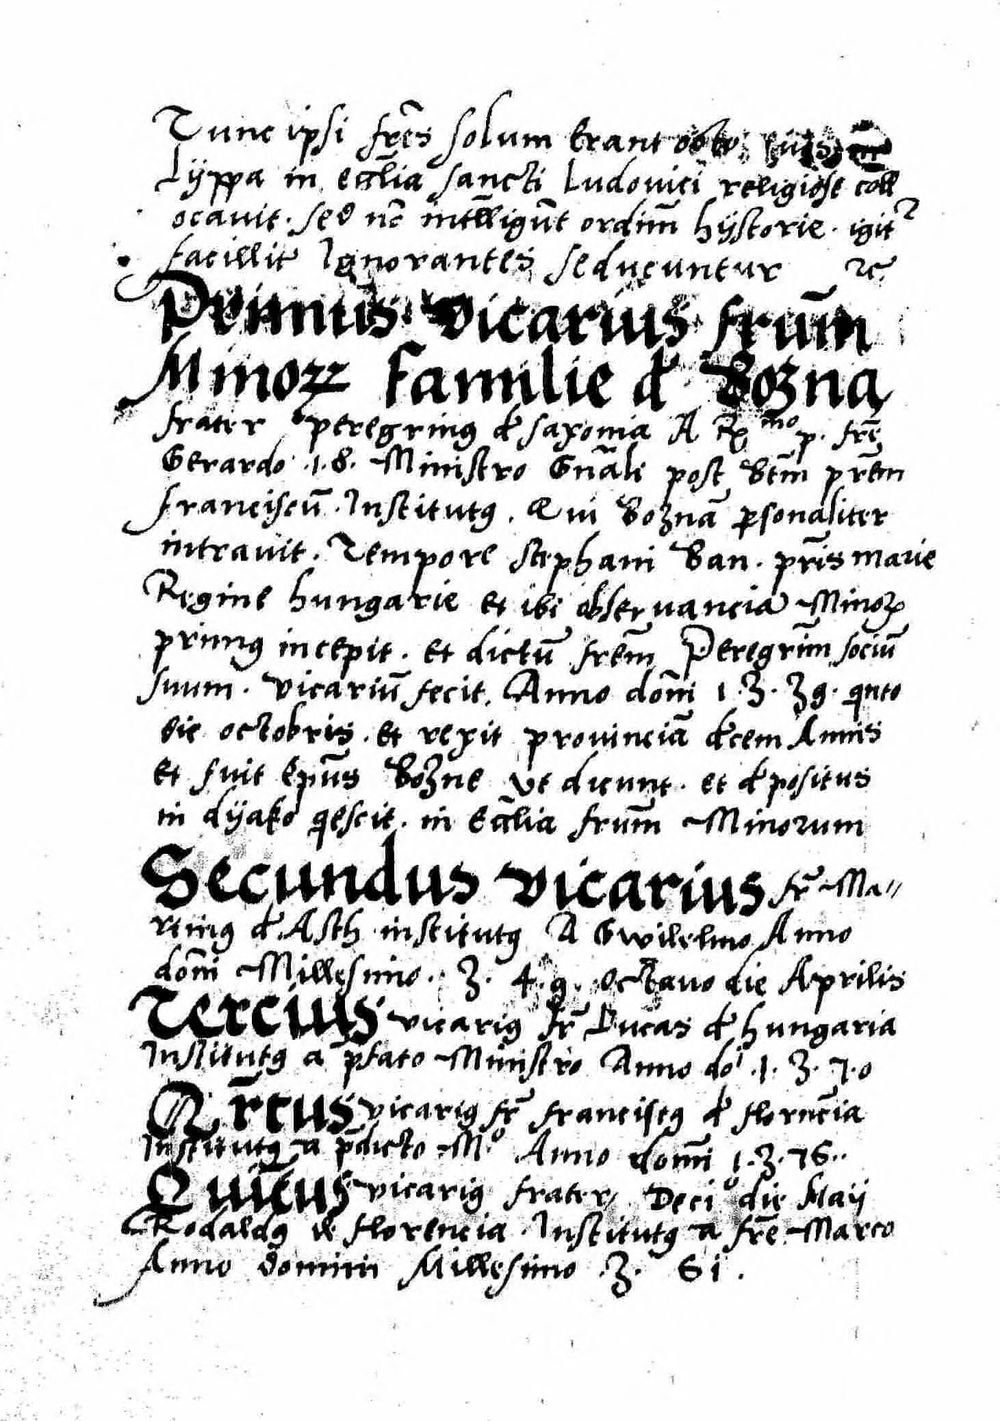 Tunc ipsi frēs solum Erant octo
Lÿppa in Eccl̄ia sancti Ludovici religiose coll
ocavit. Sed nō intellīgūt ordinē hÿstorie. igit
facillit Ignorantes seducuntur ꝛc
Primus vicarius frum̄
Minoꝝ Familie đ Bozna
frater peregrinꝯ đ saxonia A Rx̄mo p. frē
Gerardo .18. Ministro Gn̄ali post btm̄ prēm
franciscū. Institutꝯ. Qui Boznā ꝑsonaliter
intravit. Tempore stephani Ban. prīs marie
Regine hungarie Et ibi observancia Minoꝝ
primꝯ incepit. Et dictū frēm Peregrinū sociū
suum. vicariū fecit. Anno dom̄i 1.3.39. qnto
die octobris. Et rexit provinciā đcem Annis
Et fuit Epūs Bozne vt dicunt. et đpositus
in dÿako qescit. in Eccl̄ia frum̄ Minorum
Secundus vicarius fr̄ Ma//
rtinꝯ đ Asth institutꝯ A Gwilelmo Anno
dom̄i Millesimo. 3. 4. 9. octavo die Aprilis
Tercius vicariꝯ fr̄ Lucas đ hungaria
Institutꝯ a p̄fato Ministro Anno do .1.3.7.0
Qr̄tus vicariꝯ fr̄ franciscꝯ đ florn̄cia
Institutꝯ a p̄dicto Mº Anno dom̄i 1.3.76..
Quītus vicariꝯ frater, Decīº die Maij
Rodaldꝯ đ florencia Institutꝯ a frē Marco
Anno domini Millesimo .3. 81.